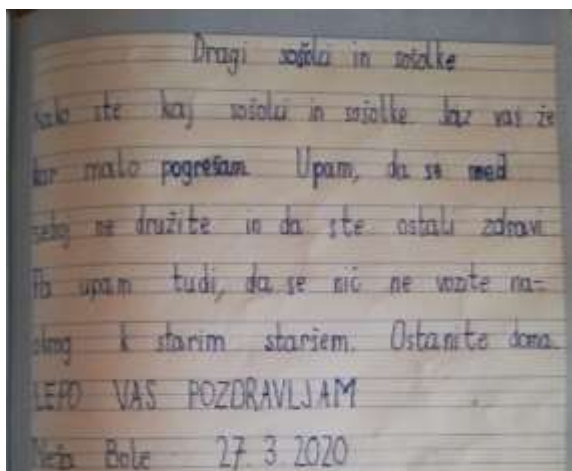 Dragi sošolci in sošolke
kako ste kaj sošolci in sošolke Jaz vas že
kar malo pogrešam. Upam, da se med
seboj ne družite in da ste ostali zdravi
Pa upam tudi, da se nič ne vozte na-
okrog k starim staršem. Ostanite doma.
LEPO VAS POZDRAVLJAM
Neža 27. 3. 2020